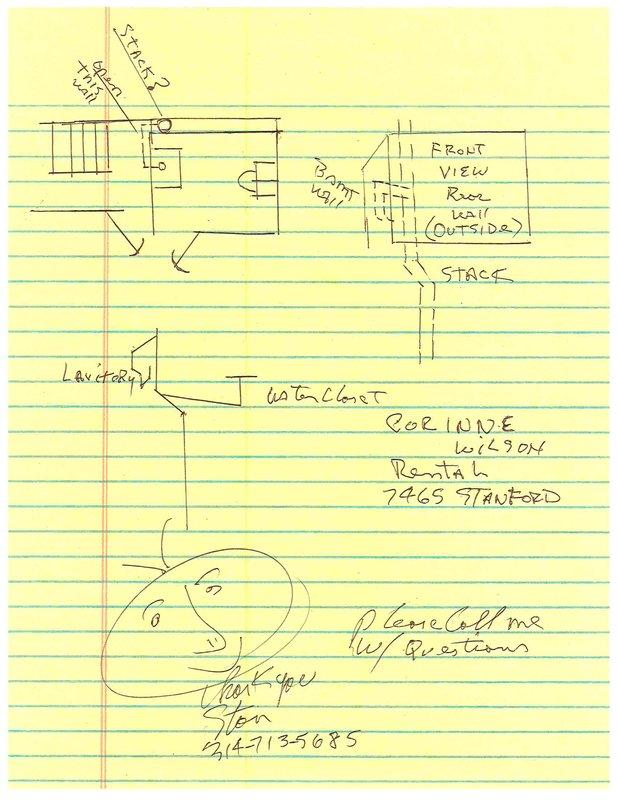 STACK?
Open
this
wall
Bsmt
wall
FRONT
VIEW
Rear
wall
(OUTSIDe)
STACK
LaVitORy
WaterCloset
CORINNE
WilsoN
Rental
7465 STANFORD
Please Call me
W/ Questions
Thank you
Stan
314-713-5685